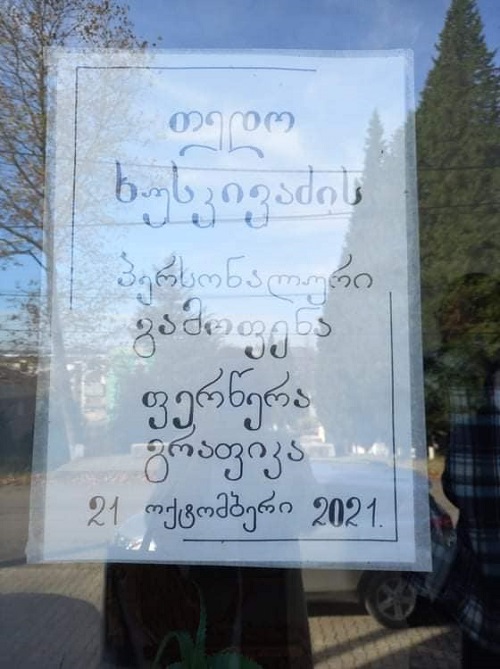 თედო
ხუსკივაძის
პერსონალური
გამოფენა
ფერწერა
გრაფიკა
21 ოქტომბერი 2021.